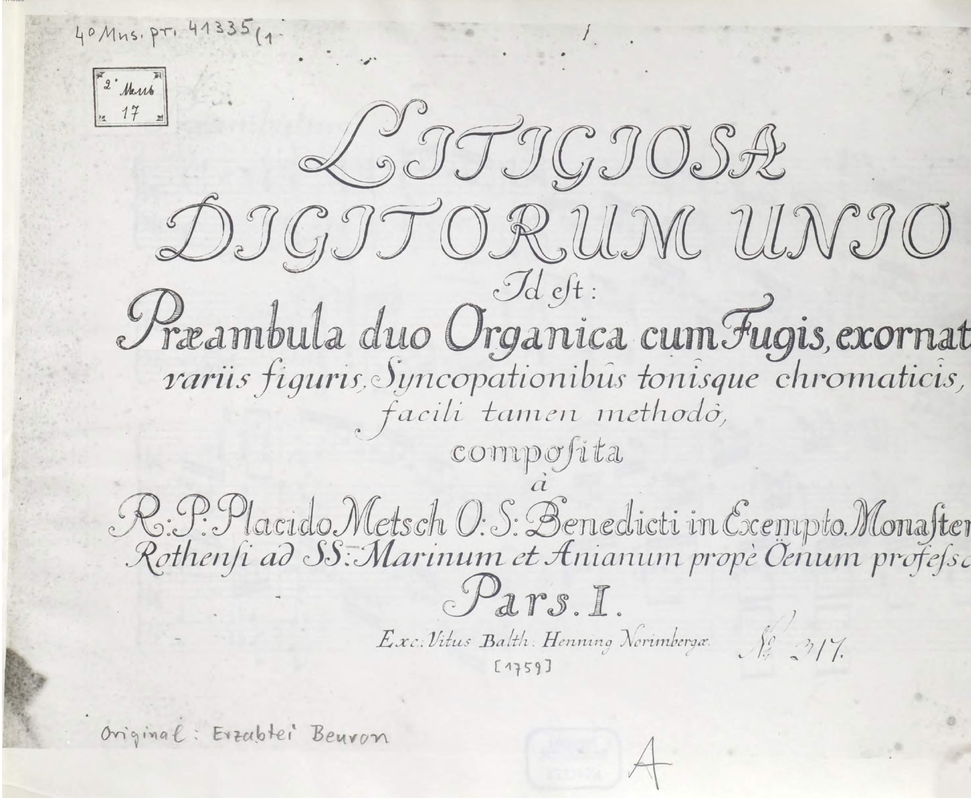 4º Mus. pr. 41335/1
2º Mus
17
LITIGIOSA
DIGITORUM UNIO
Id eſt:
Præambula duo Organica cum Fugis, exornat
variis figuris, Syncopationibûs tonîsque chromaticîs,
facili tamen methodô,
compoſita
à
R: P: Placido Metsch O: S: Benedicti in Exempto Monaſter
Rothenſi ad SS: Marinum et Anianum propè Öenum profeſs
Pars. I.
Exc: Vitus Balth: Henning Norimbergæ. Nº 317.
[1759]
Original: Erzabtei Beuron
A